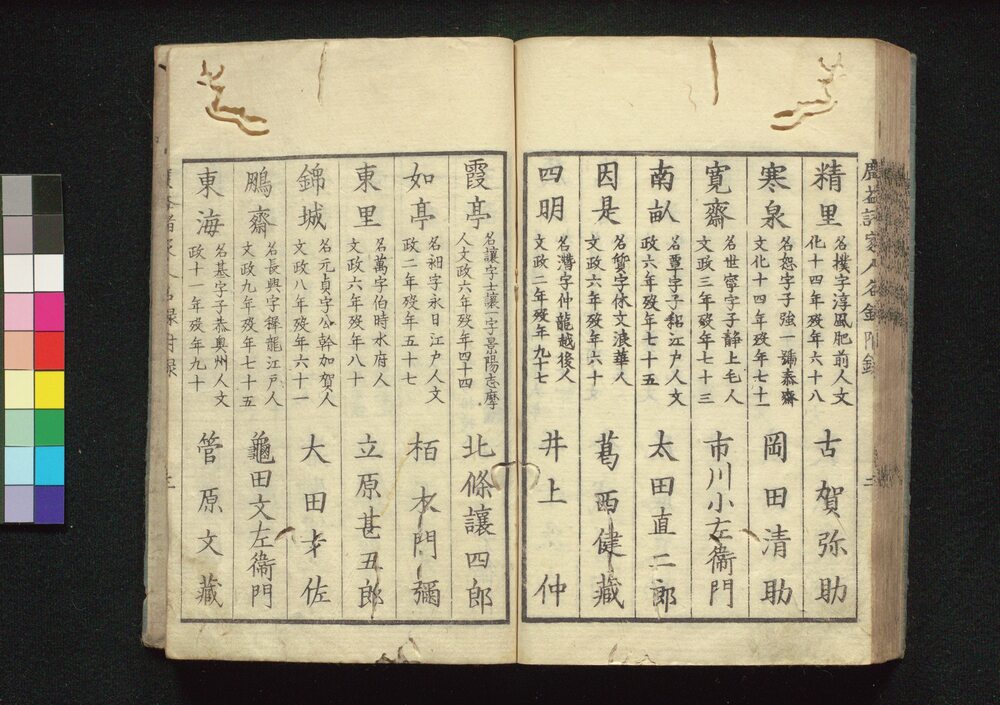 精里
名樸字淳風肥前人文
化十四年歿年六十八
古賀弥助
寒泉
名恕字子強一號泰齋
文化十四年歿年七十一
岡田清助
寛齋
名世寧字子静上毛人
文政三年歿年七十三
市川小左衞門
南畝
名覃字子耜江戸人文
政六年歿年七十五
太田直二郎
因是
名質字休文浪華人
文政六年歿年六十
葛西健藏
四明
名潛字仲龍越後人
文政二年歿年九十七
井上仲
霞亭
名讓字士讓一字景陽志摩
人文政六年歿年四十四
北條讓四郎
如亭
名昶字永日江戸人文
政二年歿年五十七
栢木門彌
東里
名萬字伯時水府人
文政六年歿年八十
立原甚五郎
錦城
名元貞字公幹加賀人
文政八年歿年六十一
大田才佐
鵬齋
名長興字穉龍江戸人
文政九年歿年七十五
龜田文左衞門
東海
名基字子恭奥州人文
政十一年歿年九十
管原文藏